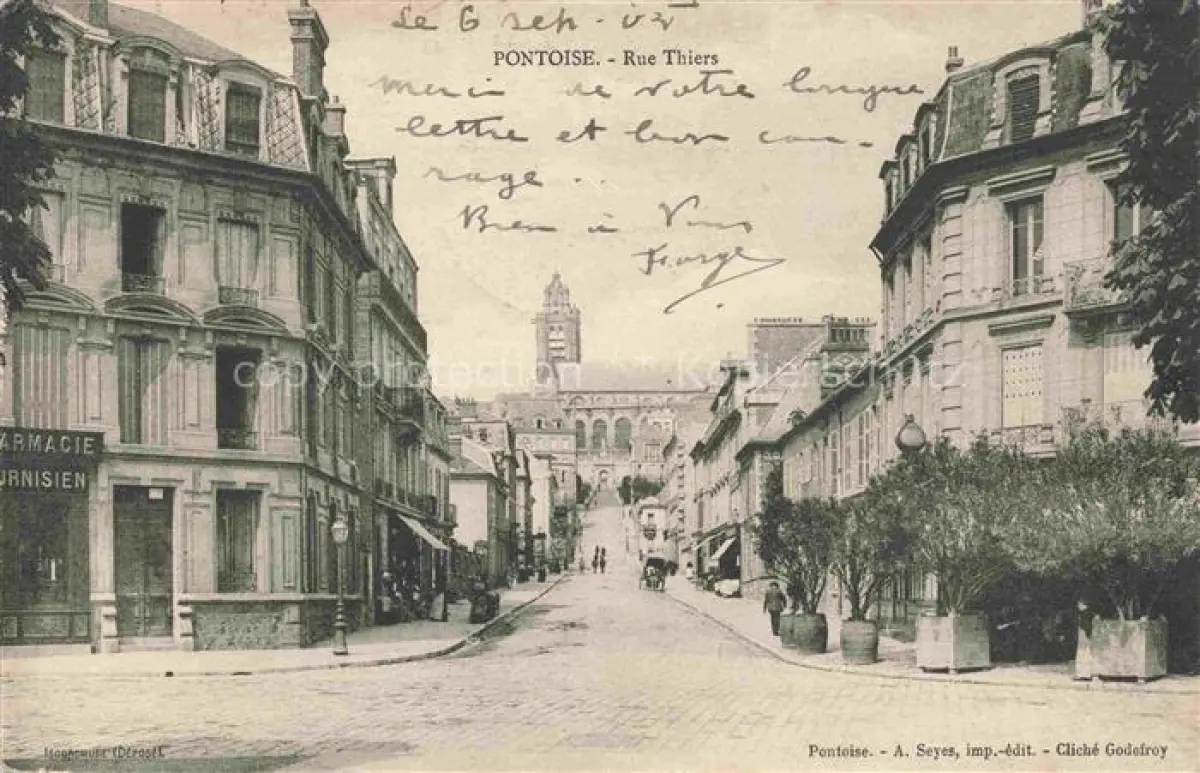 Le 6 sep. 02
PONTOISE. - Rue Thiers
merci de votre longue
lettre et bon cou-
rage ..
Bien à Vous
copy protection Kopierschutz
ARMACIE
URNISIEN
ISOCHROME (Déposé).
Pontoise. - A. Seyes, imp.-édit. - Cliché Godefroy